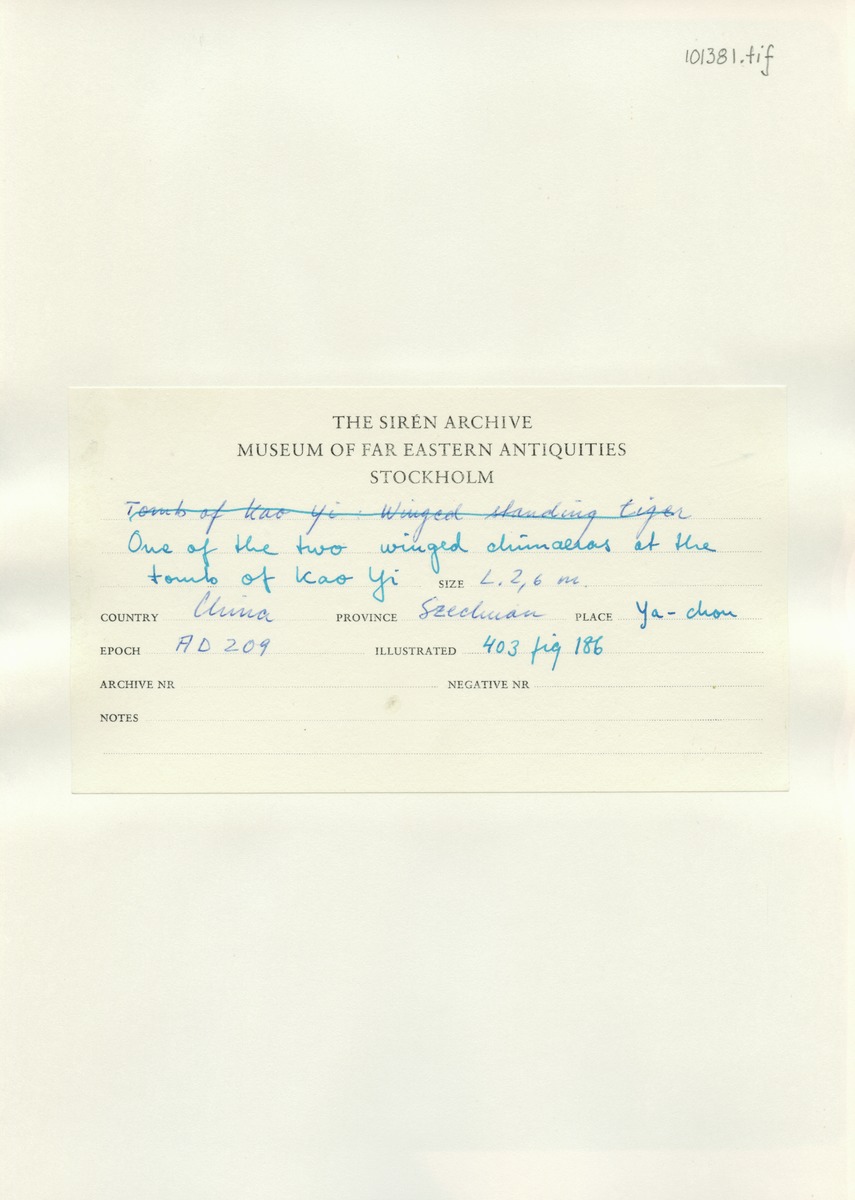 101381.tif
THE SIRÉN ARCHIVE
MUSEUM OF FAR EASTERN ANTIQUITIES
STOCKHOLM
Tomb of Kao Yi : Winged standing tiger
One of the two winged chimaeras at the
tomb of Kao Yi SIZE L. 2,6 m.
COUNTRY China PROVINCE Szechuan PLACE Ya-chou
EPOCH AD 209 ILLUSTRATED 403 fig 186
ARCHIVE NR NEGATIVE NR
NOTES